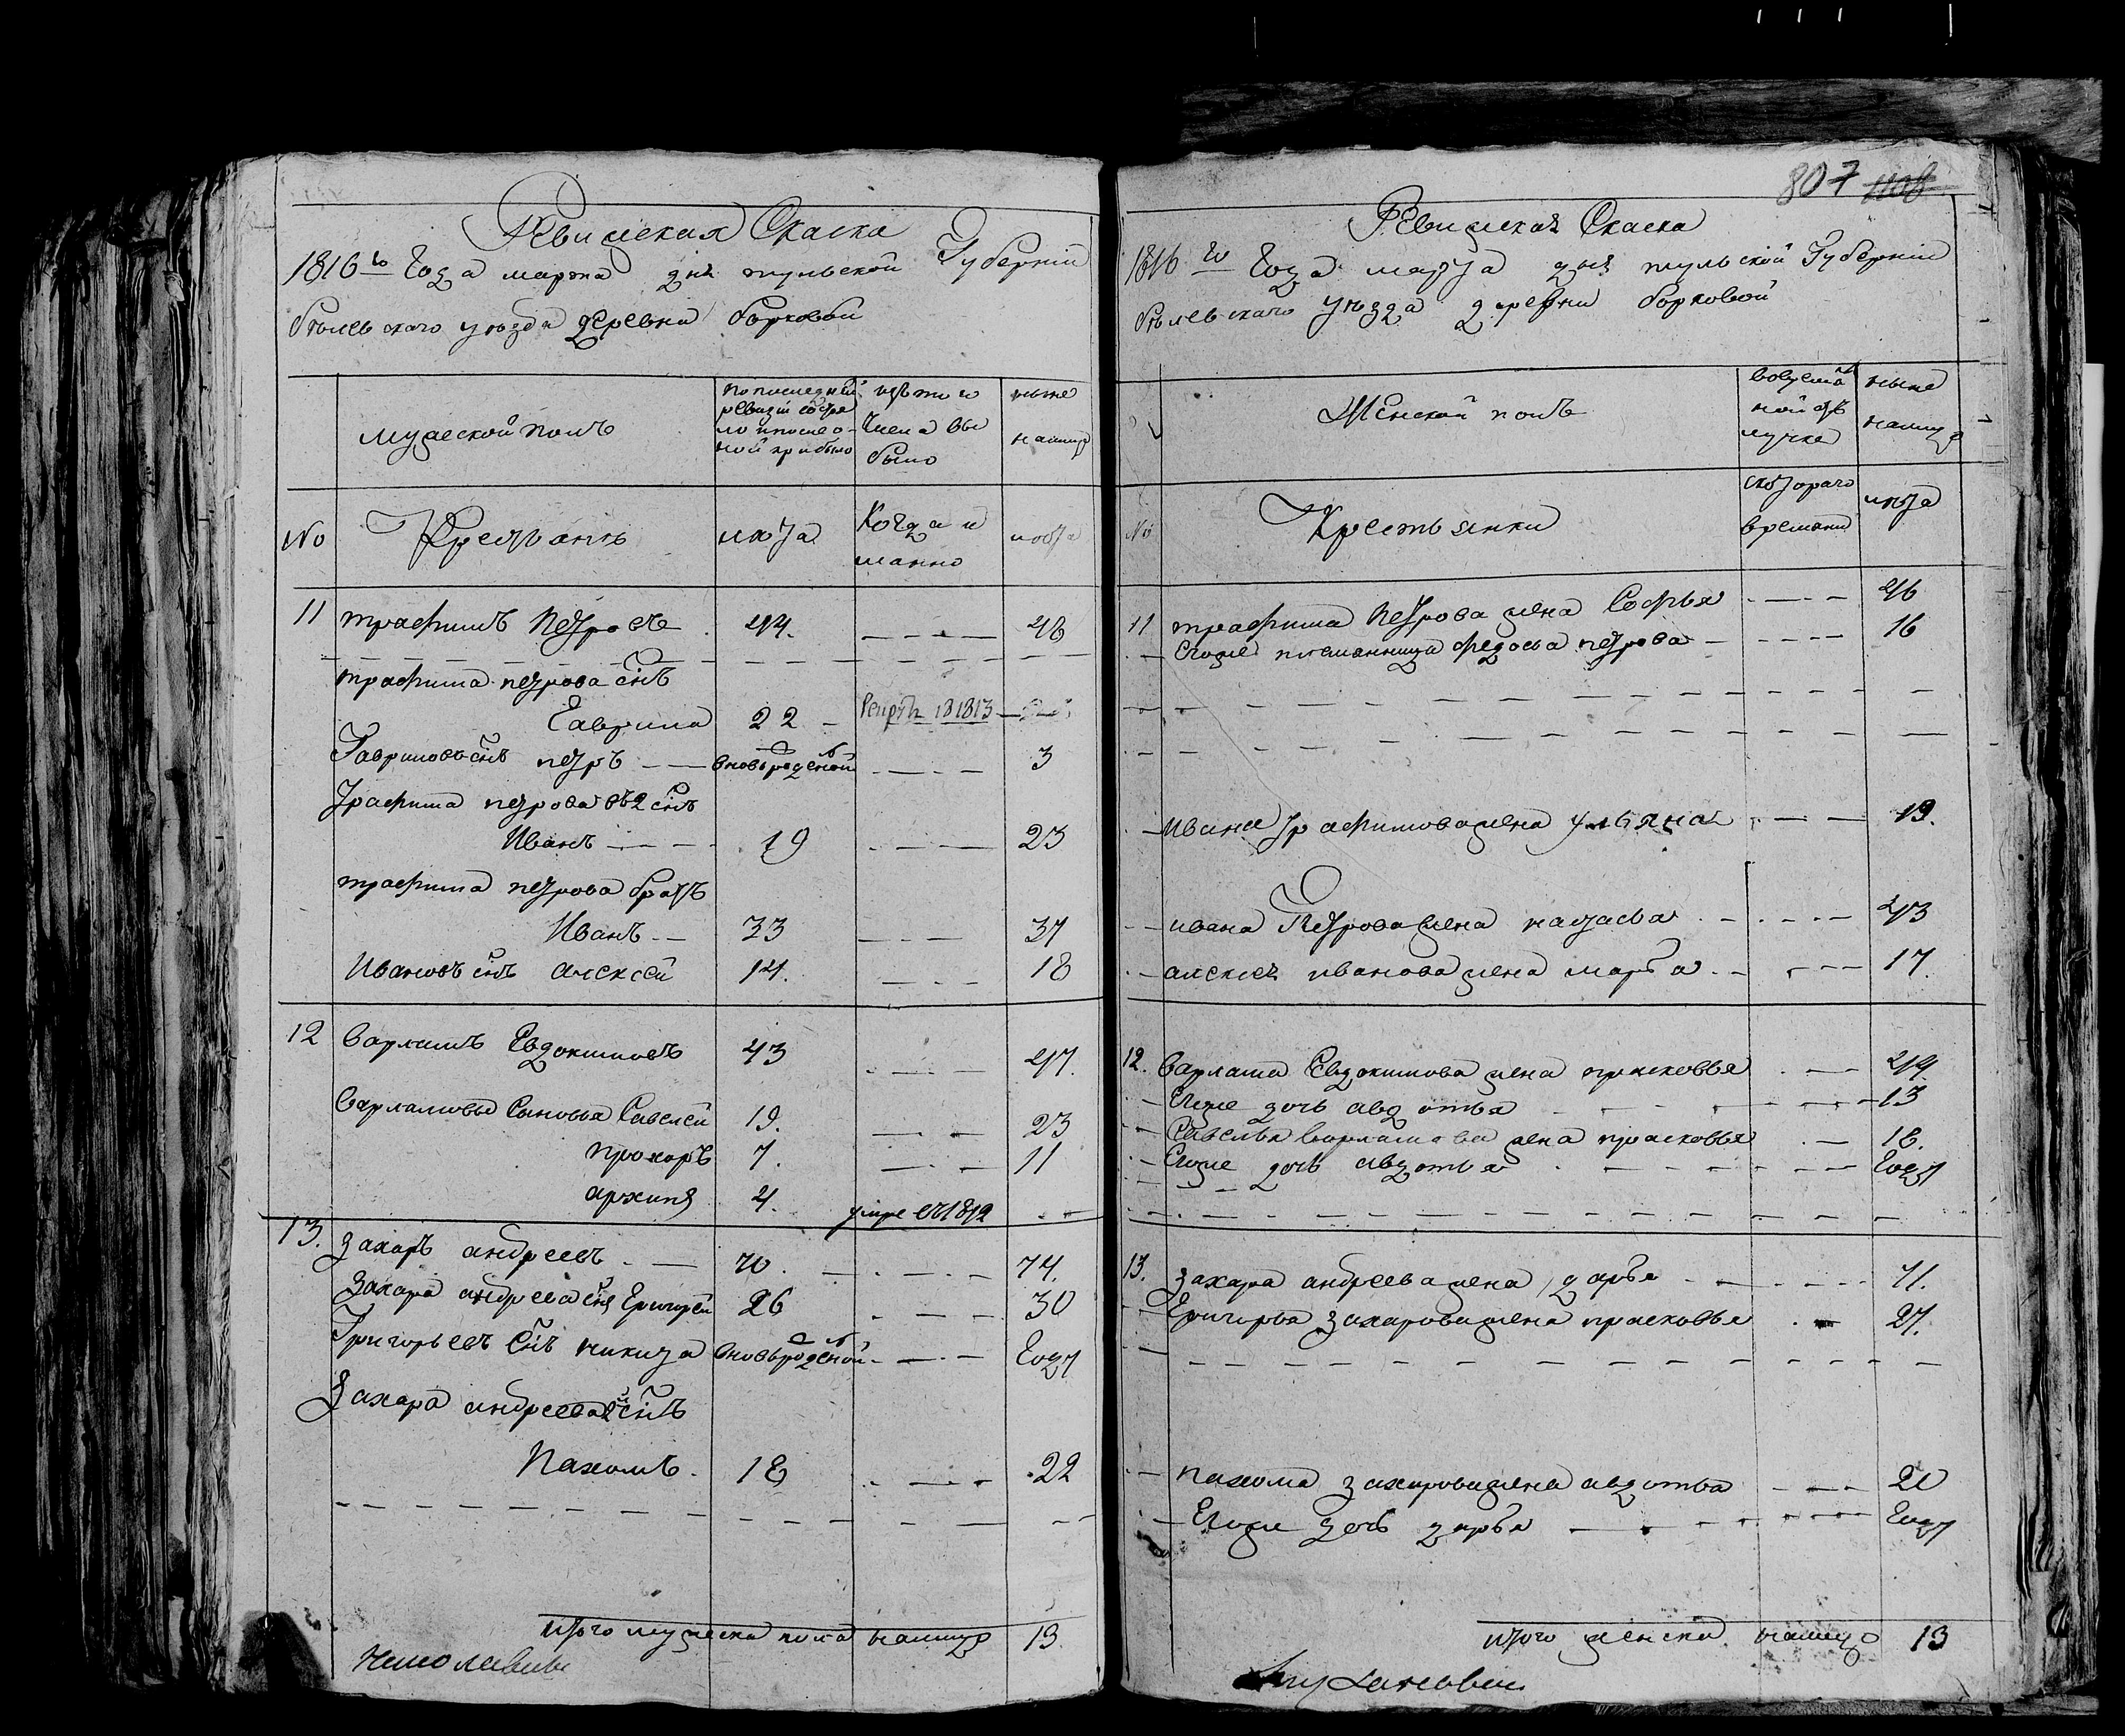 Ревижская Скаска
1816го Года марта дня тульской Губернии
белевскаго уезда деревни борковой
мужеской полъ
по последней ревизии состояло и после оной прибыло
изъ того числа выбыло
ныне налицо
No
Крестьянъ
лета
Когда и
лета
11 трафимъ Петровъ 44. 48
трафима петрова сынъ
Гаврила 22
1813
Гавриловъ сынъ петръ вновьрожденой 3
трафима петрова 2 сынъ
Иванъ 19 23
трафима петрова братъ
Иванъ 33 37
Ивановъ сынъ алексей 14. 18
12 варламъ Евдокимовъ 43 47.
варламовы Сыновья Савелей 19. 23
прохоръ 7. 11
архипъ 4. умре въ 1812
13. захаръ андреевъ 70. 74.
захара андреева сынъ Григорей 26 30
Григорьевъ Сынъ никита вновьрожденой Году
Захара андреева 2й сынъ
Пахомъ. 18 22
итого мужеска пола налицо 13.
807
Ревижская Скаска
1816го Года марта дня тульской Губернии
белевскаго уезда деревни борковой
Женской полъ
во временной отлучке
ныне налицо
No
Крестьянки
с котораго времени
лета
11 трафима Петрова жена Софья 46
Егоже племянница федосья петрова 16
Ивана трафимова жена ульяна 19.
ивана Петрова жена настасья 43
алексея иванова жена марфа 17.
12. варлама Евдокимова жена прасковья 49
Егоже дочь авдотья 13
Савелья варламова жена прасковья 18.
Егоже дочь авдотья Году
13. захара андреева жена дарья 71.
Григорья захарова жена прасковья 27.
пахома захарова жена авдотья 20
Егоже дочь дарья Году
итого женска налицо 13